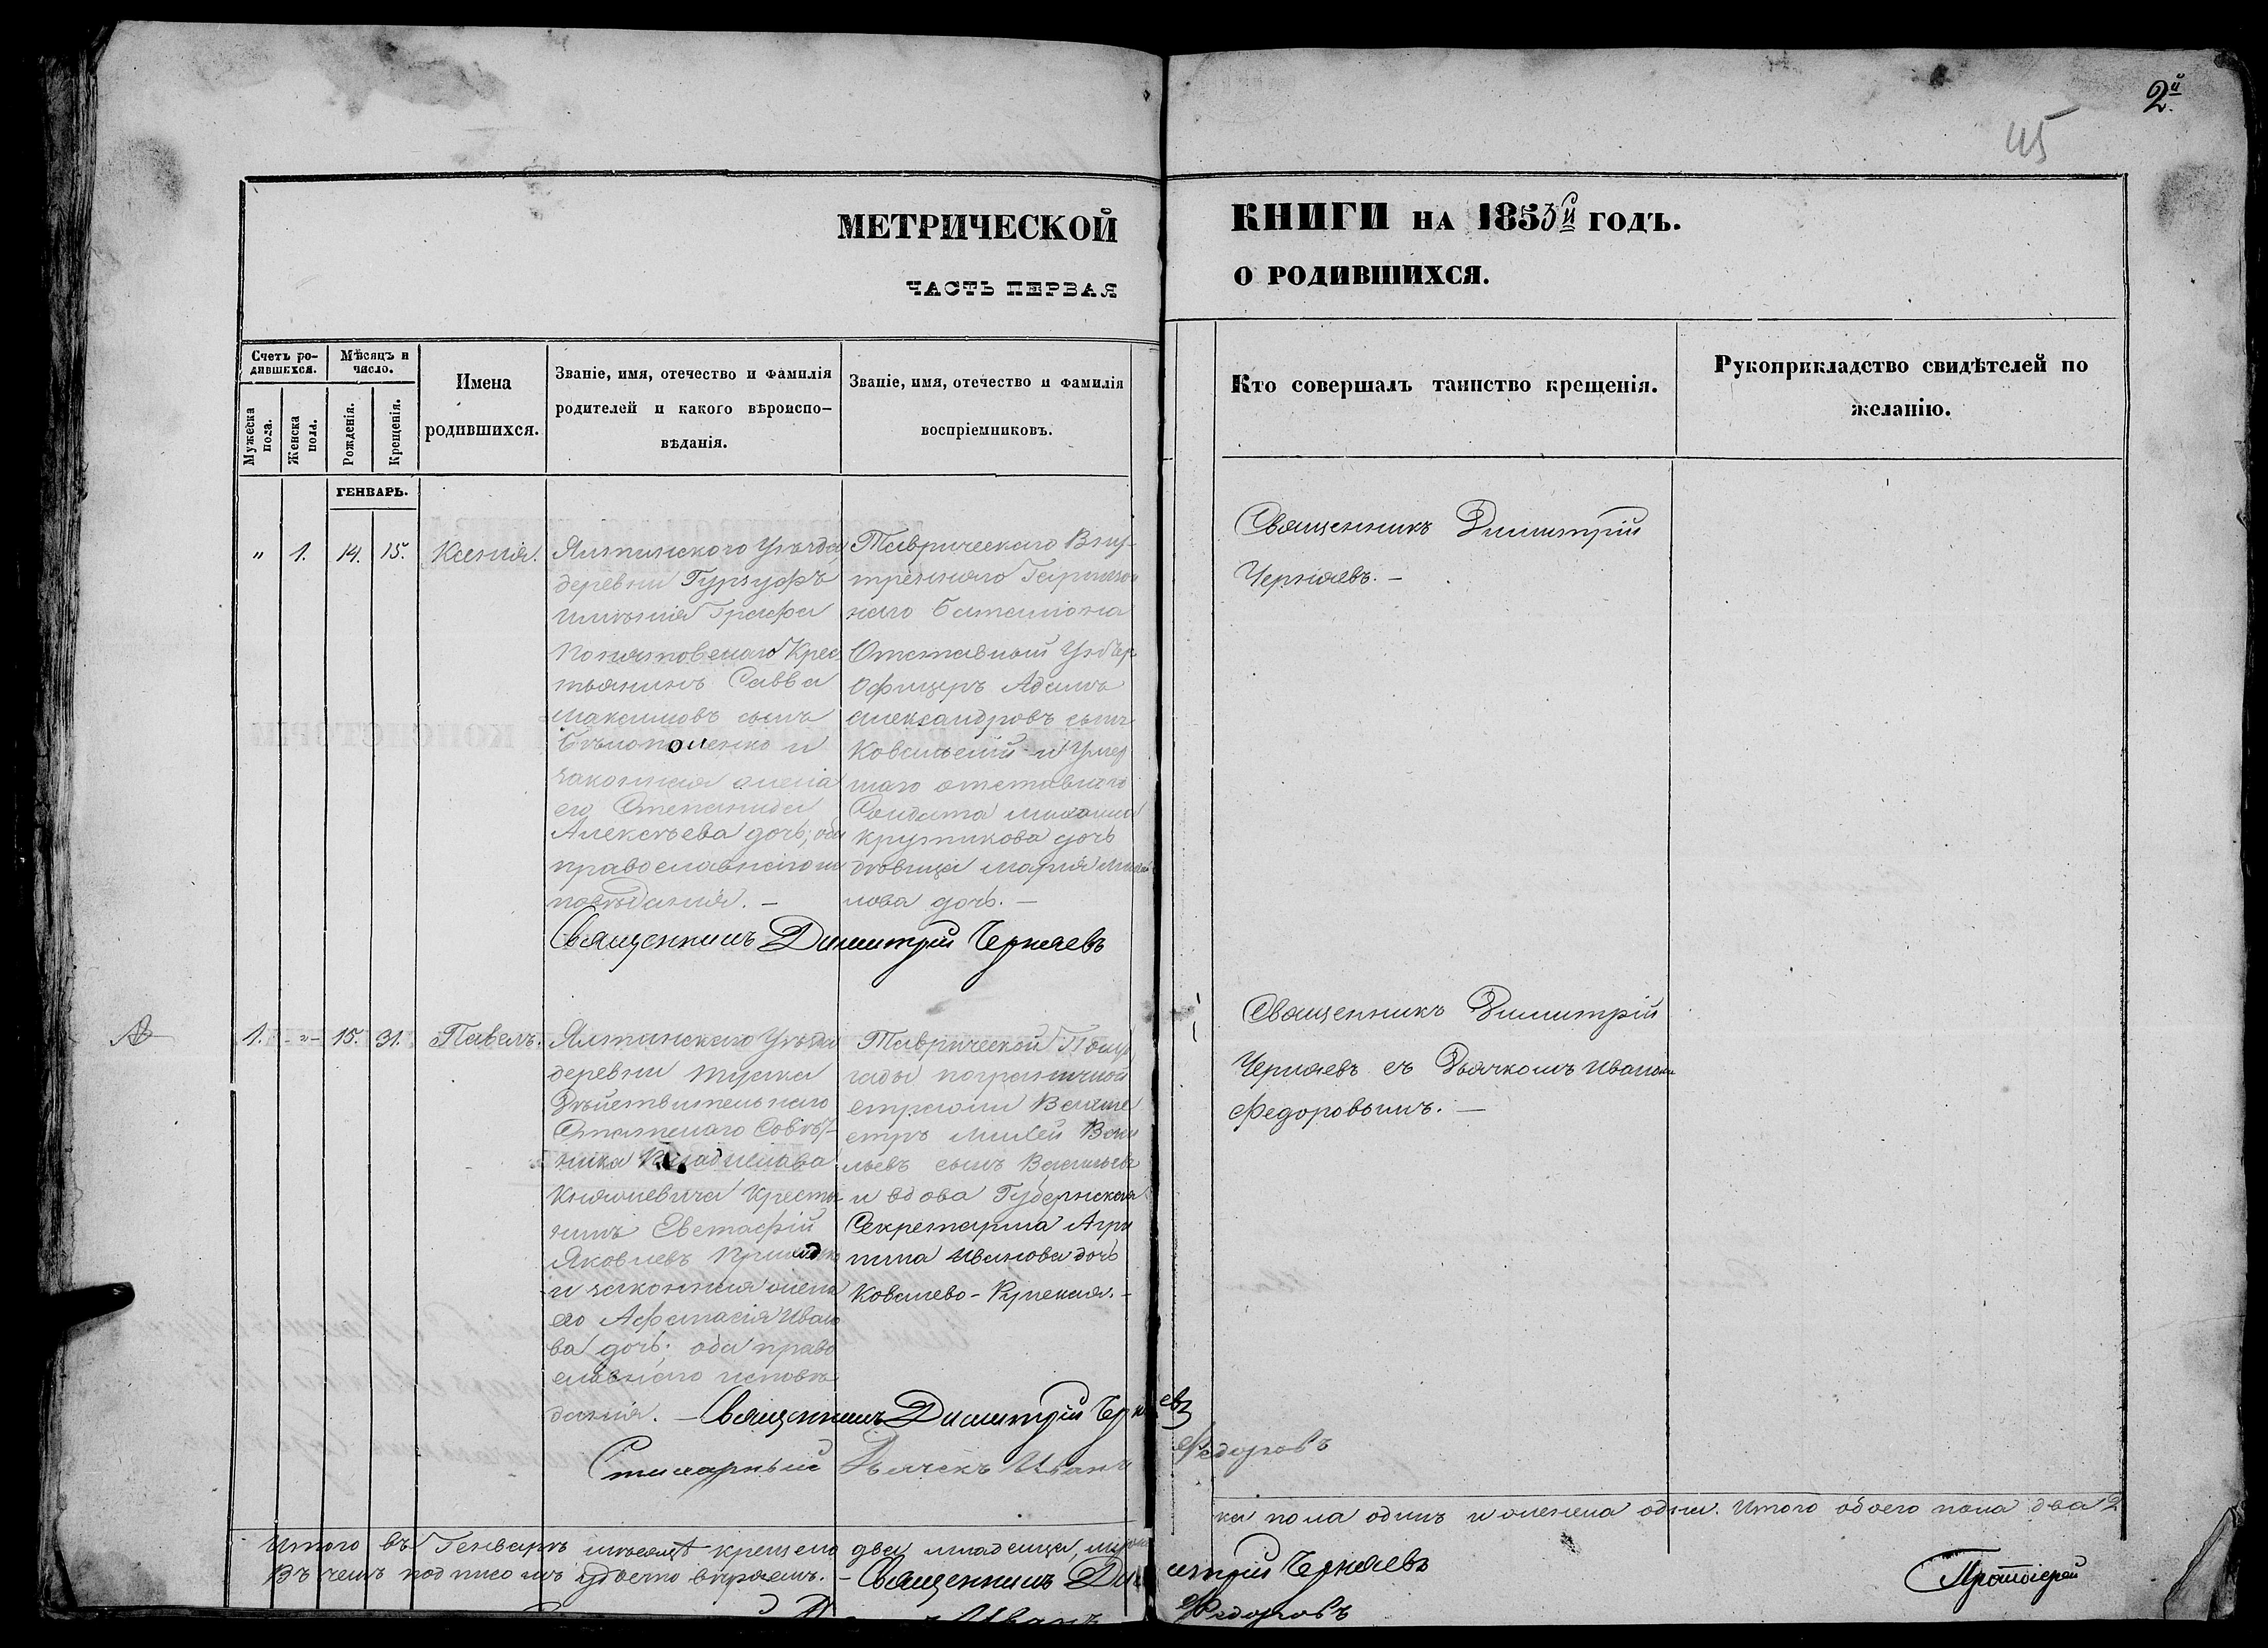 2й
45
МЕТРИЧЕСКОЙ
ЧАСТЬ ПЕРВАЯ
КНИГИ НА 1853й ГОДЪ.
О РОДИВШИХСЯ.
Счетъ ро-
дившихся.
Мѣсяцъ и
число.
Мужеска
пола.
Женска
пола.
Рожденія.
Крещенія.
Имена
родившихся.
Званіе, имя, отечество и фамилія
родителей и какого вѣроиспо-
вѣданія.
Званіе, имя, отечество и фамилія
воспріемниковъ.
Кто совершалъ таинство крещенія.
Рукоприкладство свидѣтелей по
желанію.
ГЕНВАРЬ.
" 1. 14. 15. Ксенія.
Ялтинскаго Уѣзда
деревни Гурзуфъ
имѣнія Графа
Крес-
тьянинъ Савва
Максимовъ сынъ
и
законная жена
его Степанида
Алексѣева дочь; оба
православнаго ис
повѣданія. —
Таврическаго Вну-
тренняго Гарнизон
наго баталіона
Отставный Унтеръ
Офицеръ Адамъ
Александровъ сынъ
Ковальскій и Умер
шаго отставнаго
Солдата Михаила
Крутикова дочь
дѣвица Марія Михаи
лова дочь. —
Священникъ Димитрій
Черняевъ. —
Священникъ Димитрій Черняевъ
1. -"- 15. 31. Павелъ.
Ялтинскаго Уѣзда
деревни
Дѣйствительнаго
Статскаго Совѣт-
ника
Княжевича Крестья
нинъ Евстафій
Яковлевъ
и законная жена
его Афанасія Ивано
ва дочь; оба право
славнаго исповѣ
данія. —
Таврической
гады пограничной
стражи Вахме
стръ Васи
льевъ сынъ Васильевъ
и вдова Губернская
Секретарша Агри
пина Иванова дочь
Ковалево-Рупская. —
Священникъ Димитрій
Черняевъ съ Дьячкомъ Иваномъ
Федоровымъ. —
Священникъ Димитрій Черняевъ
Дьячекъ Иванъ Федоровъ
Итого въ Генварѣ мѣсяцѣ крещено два младенца, мужес
ка пола одинъ и женска одна. Итого обоего пола два 2
Въ чемъ подписомъ удостовѣряемъ. — Священникъ Димитрій Черняевъ
Протоіерей
Иванъ Федоровъ